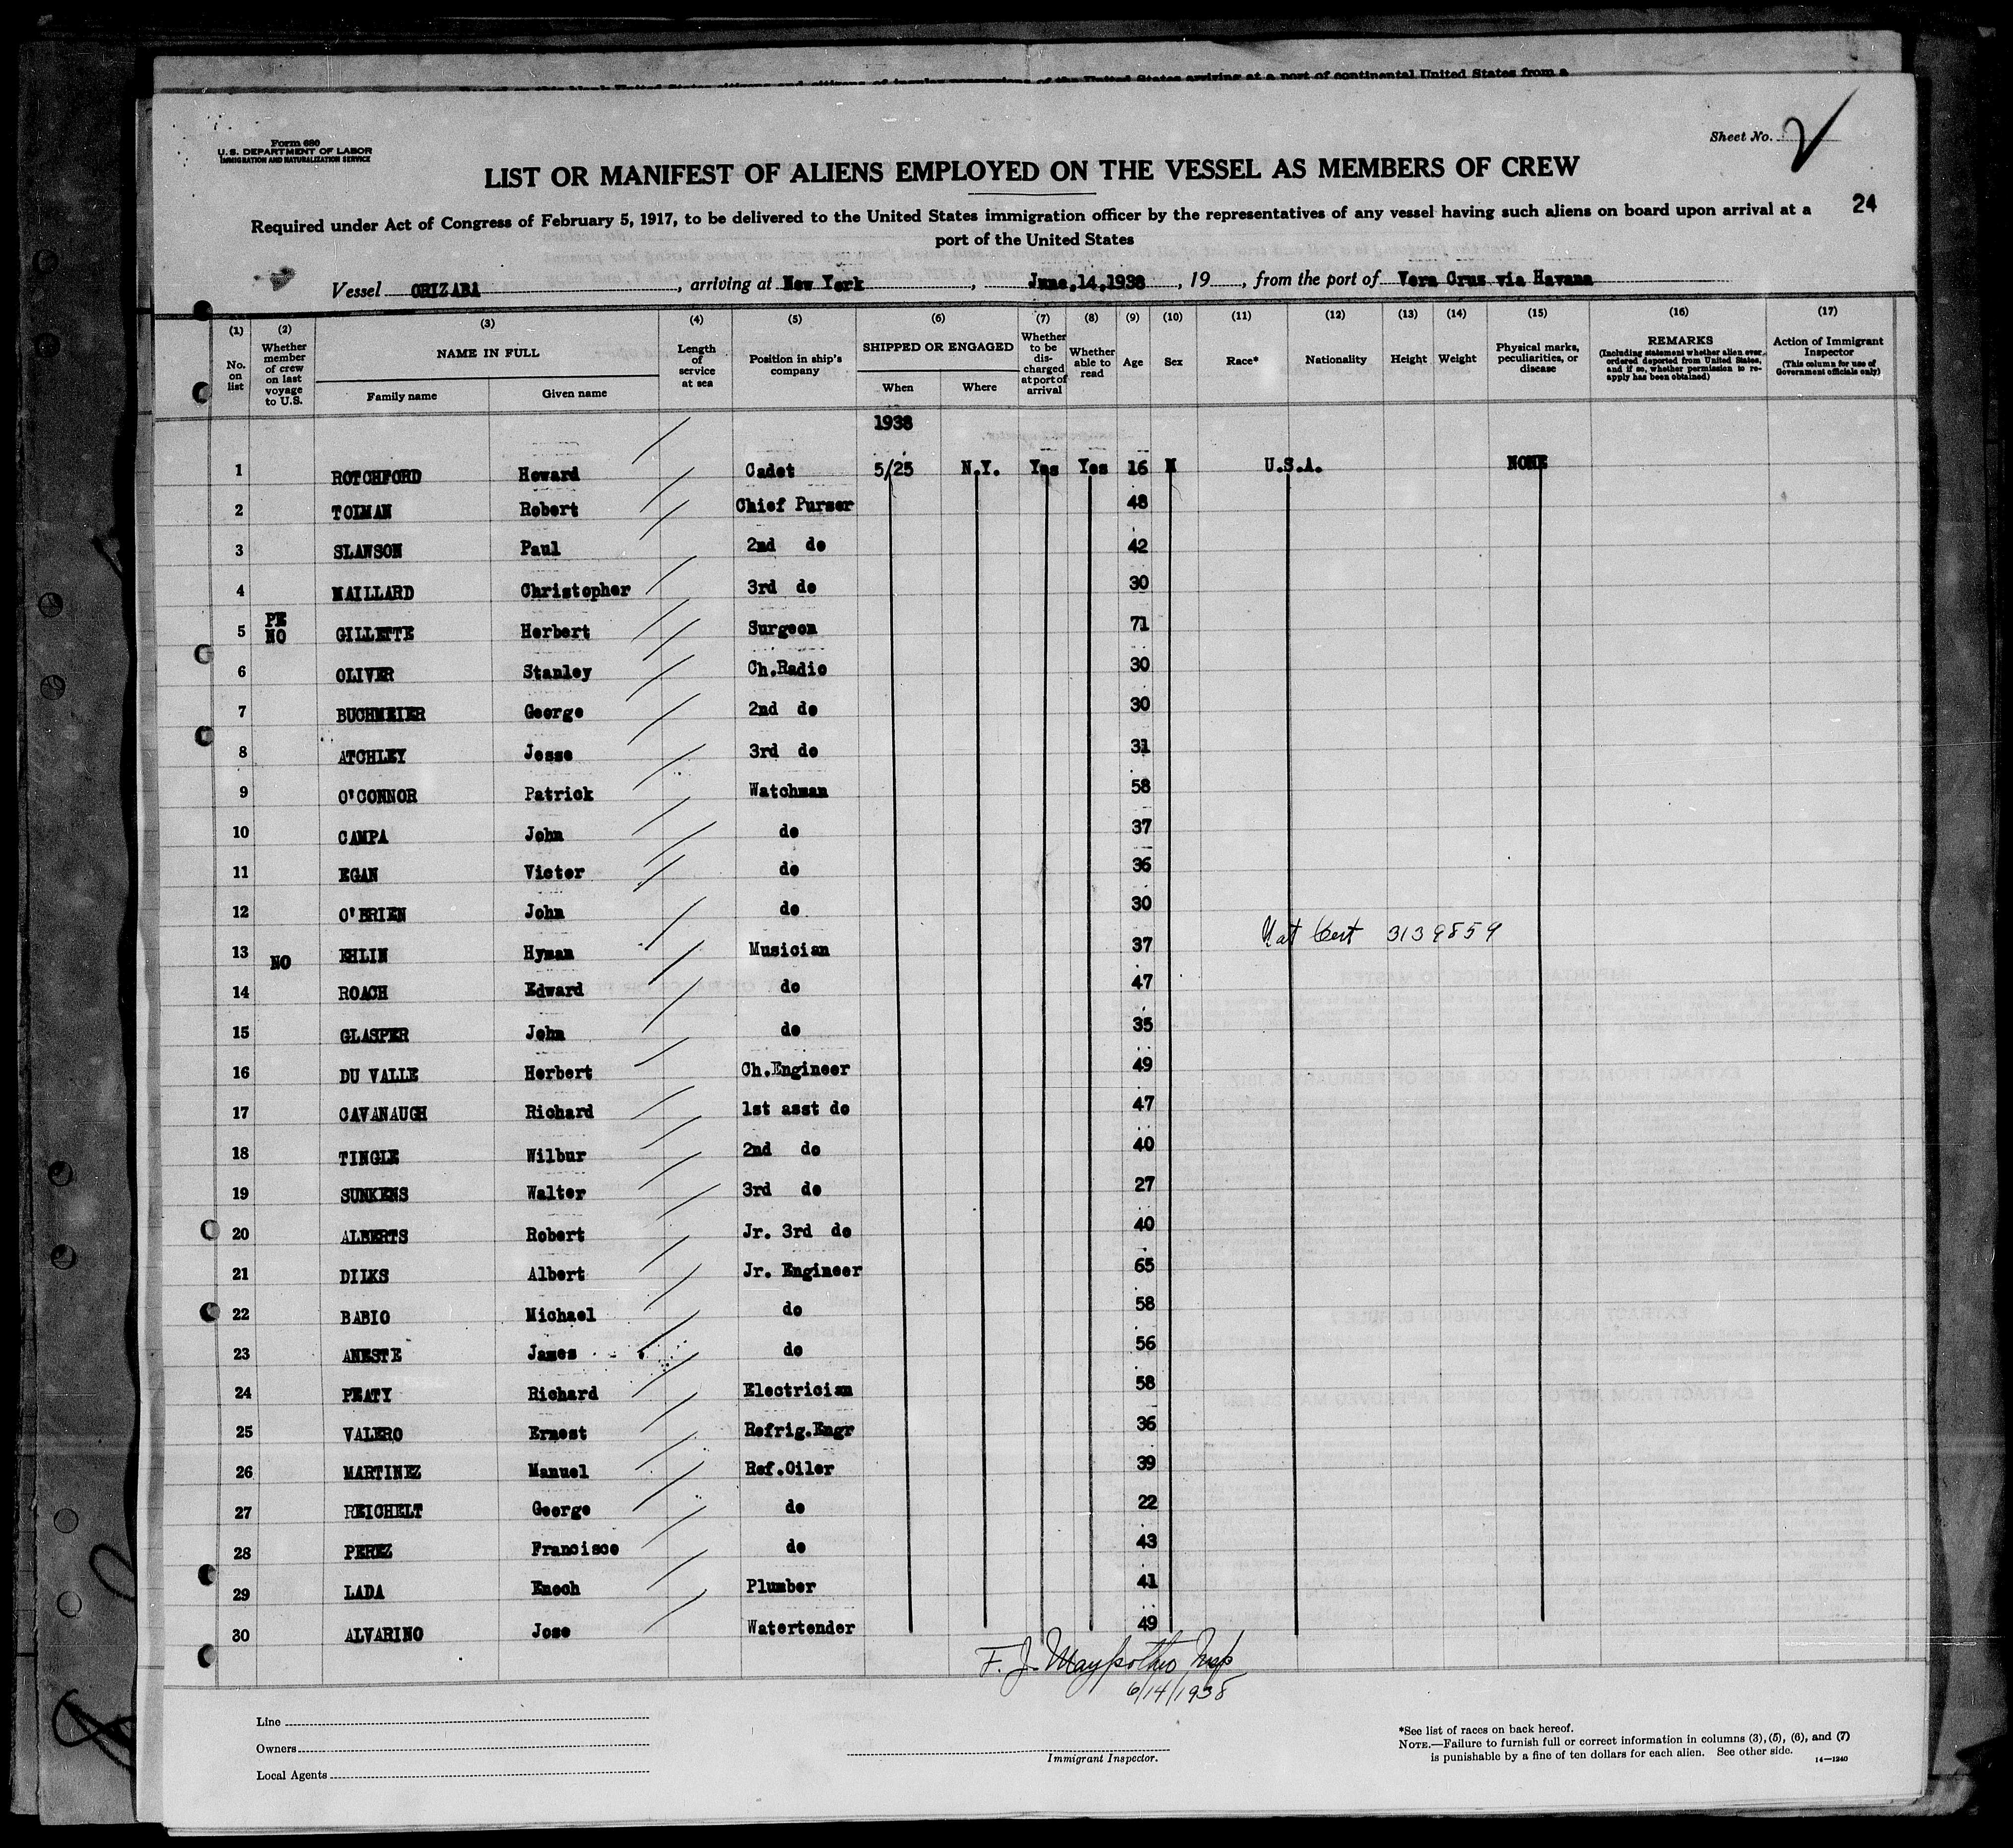 Form 680
U. S. DEPARTMENT OF LABOR
IMMIGRATION AND NATURALIZATION SERVICE
Sheet No. 2
LIST OR MANIFEST OF ALIENS EMPLOYED ON THE VESSEL AS MEMBERS OF CREW
24
Required under Act of Congress of February 5, 1917, to be delivered to the United States immigration officer by the representatives of any vessel having such aliens on board upon arrival at a
port of the United States
Vessel ORIZABA, arriving at New York, June, 14, 1938, 19, from the port of Vera Cruz via Havana
(1) No. on list
(2) Whether member of crew on last voyage to U.S.
(3) NAME IN FULL Family name Given name
(4) Length of service at sea
(5) Position in ship's company
(6) SHIPPED OR ENGAGED When Where
(7) Whether to be discharged at port of arrival
(8) Whether able to read
(9) Age
(10) Sex
(11) Race*
(12) Nationality
(13) Height
(14) Weight
(15) Physical marks, peculiarities, or disease
(16) REMARKS (Including statement whether alien ever ordered deported from United States, and if so, whether permission to reapply has been obtained)
(17) Action of Immigrant Inspector (This column for use of Government officials only)
1938
1 ROTCHFORD Howard Cadet 5/25 N.Y. Yes Yes 16 M U.S.A. NONE
2 TOLMAN Robert Chief Purser 48
3 SLAWSON Paul 2nd do 42
4 MAILLARD Christopher 3rd do 30
5 PE NO GILLETTE Herbert Surgeon 71
6 OLIVER Stanley Ch.Radio 30
7 BUCHMEIER George 2nd do 30
8 ATCHLEY Jesse 3rd do 31
9 O'CONNOR Patrick Watchman 58
10 CAMPA John do 37
11 EGAN Victor do 36
12 O'BRIEN John do 30
13 NO EHLIN Hyman Musician 37 Nat Cert 3139859
14 ROACH Edward do 47
15 GLASPER John do 35
16 DU VALLE Herbert Ch.Engineer 49
17 CAVANAUGH Richard 1st asst do 47
18 TINGLE Wilbur 2nd do 40
19 SUNKENS Walter 3rd do 27
20 ALBERTS Robert Jr. 3rd do 40
21 DILKS Albert Jr. Engineer 65
22 BABIO Michael do 58
23 ANESTE James do 56
24 PEATY Richard Electrician 58
25 VALERO Ernest Refrig.Engr 36
26 MARTINEZ Manuel Ref.Oiler 39
27 REICHELT George do 22
28 PEREZ Francisco do 43
29 LADA Enoch Plumber 41
30 ALVARINO Jose Watertender 49
F. J. Insp
6/14/1938
Line
Owners
Local Agents
Immigrant Inspector.
*See list of races on back hereof.
NOTE.—Failure to furnish full or correct information in columns (3), (5), (6), and (7)
is punishable by a fine of ten dollars for each alien. See other side.
14—1240